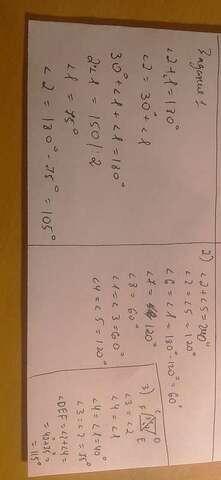 Задание 1
∠2+∠1=180°
∠2 = 30°+∠1
30°+∠1+∠1=180°
2∠1 = 150 | :2
∠1 = 75°
∠2 = 180° - 75° = 105°
2) ∠2+∠5=240°
∠2=∠5=120°
∠6=∠1=180°-120°=60°
∠7= 120°
∠8=60°
∠1=∠3=60°
∠4=∠5=120°
3)
D
E
F
∠3=∠2
∠4=∠1
∠4=∠1=40°
∠3=∠2=75°
∠DEF=∠2+∠4=
=40+75=
=115°